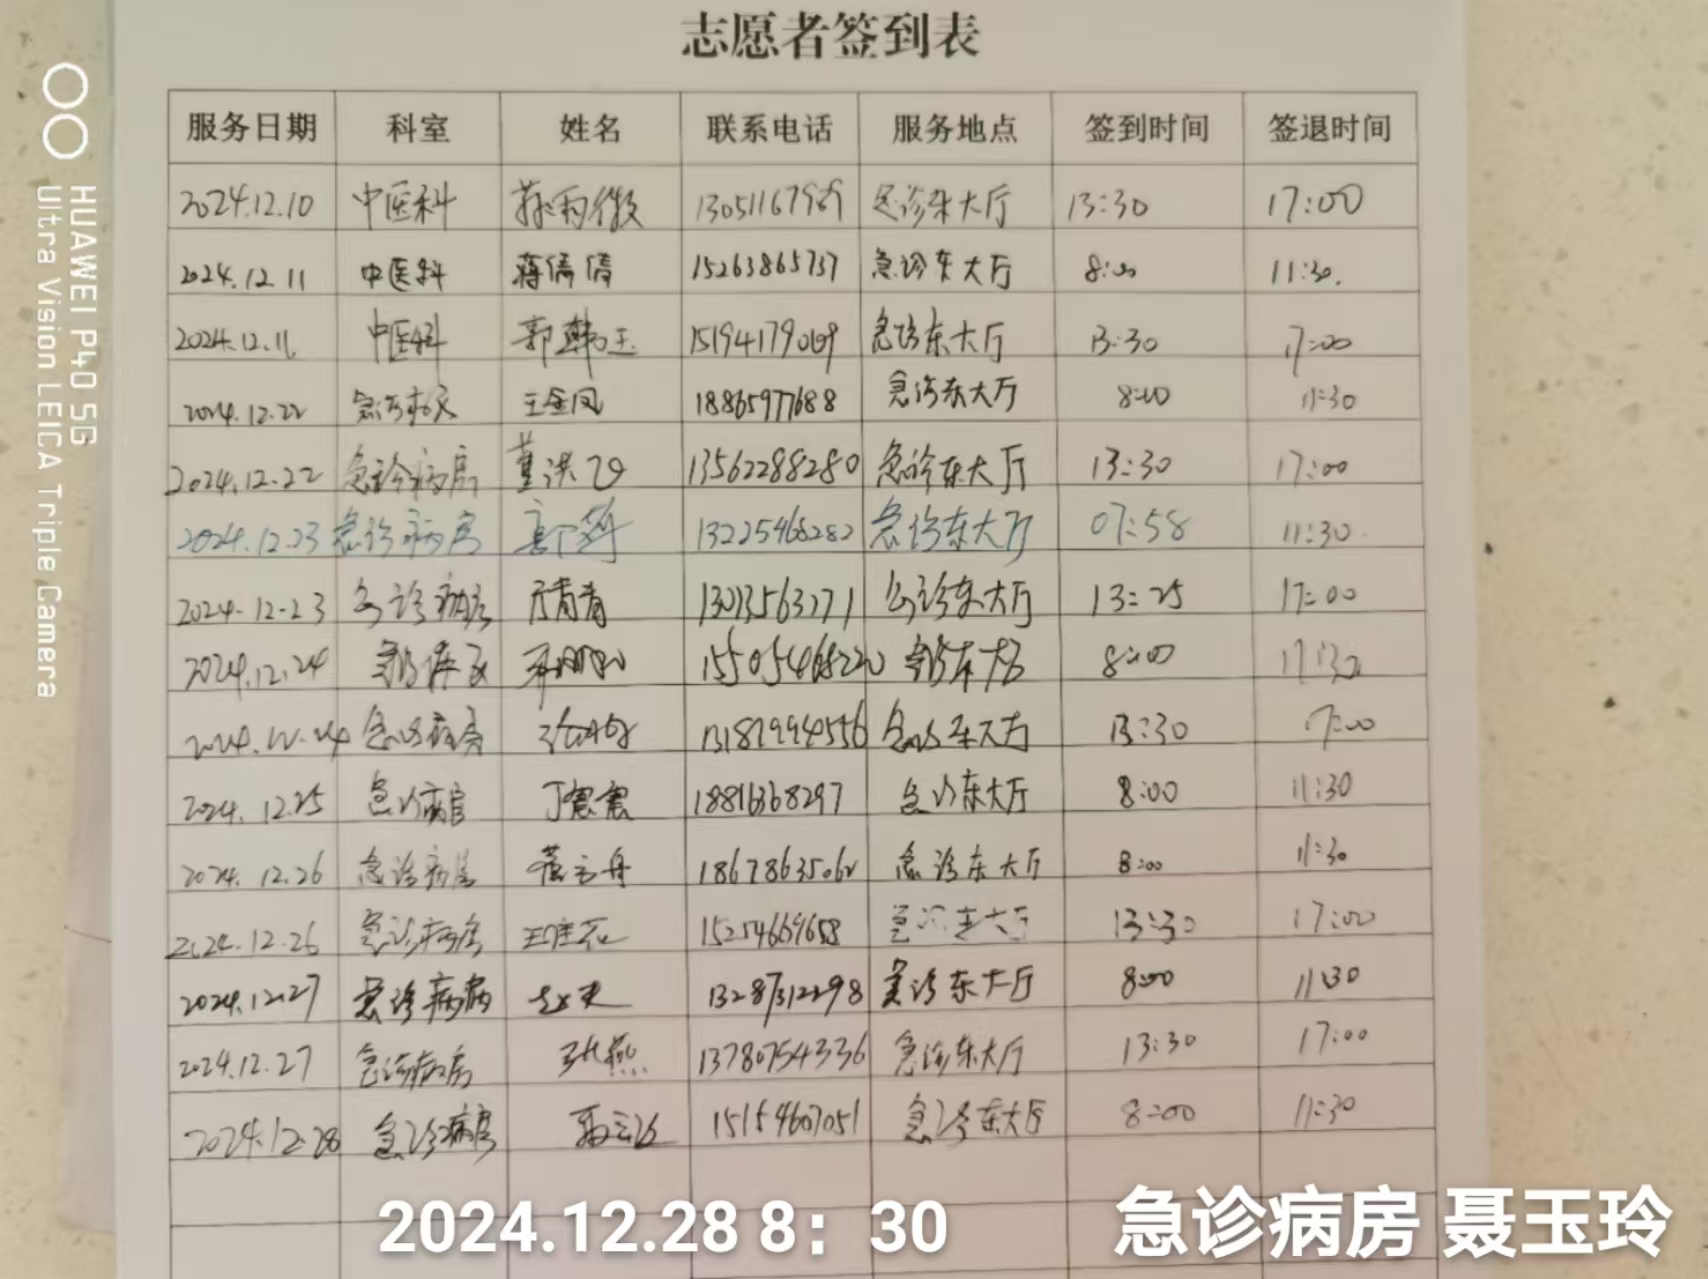 志愿者签到表
服务日期 科室 姓名 联系电话 服务地点 签到时间 签退时间
2024.12.10 中医科 13:30 17:00
2024.12.11 中医科 蒋倩倩 15263865737 急诊东大厅 8:00 11:30.
2024.12.11 中医科 郭韩玉 急诊东大厅 13:30 17:00
2024.12.22 王金凤 18865977688 急诊东大厅 8:00 11:30
2024.12.22 急诊病房 董洪 13562288280 急诊东大厅 13:30 17:00
2024.12.23 急诊病房 13225468282 急诊东大厅 07:58 11:30
2024.12.23 急诊病房 青青 急诊东大厅 13:25 17:00
2024.12.24 8:00
2024.12.24 急诊病房 13:30 17:00
2024.12.25 急诊病房 丁震震 18816368297 急诊东大厅 8:00 11:30
2024.12.26 急诊病房 急诊东大厅 8:00 11:30
2024.12.26 急诊病房 急诊东大厅 13:30 17:00
2024.12.27 急诊病病 13287312298 急诊东大厅 8:00 11:30
2024.12.27 急诊病房 张燕 13780754336 急诊东大厅 13:30 17:00
2024.12.28 急诊病房 15154607051 急诊东大厅 8:00 11:30
2024.12.28 8：30
急诊病房 聂玉玲
HUAWEI P40 5G
Ultra Vision LEICA Triple Camera